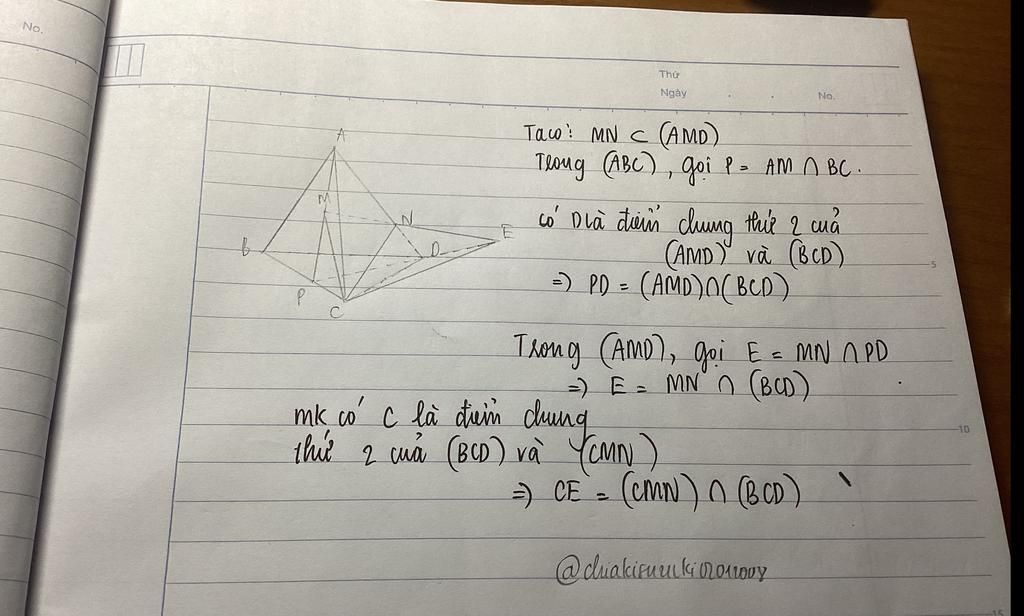 No.
Thứ
Ngày . . No.
A
M
N
B
D
E
P
C
Ta có: MN ⊂ (AMD)
Trong (ABC), gọi P = AM ∩ BC.
có D là điểm chung thứ 2 cuả
(AMD) và (BCD)
=> PD = (AMD)∩(BCD)
5
Trong (AMD), gọi E = MN ∩ PD
=> E = MN ∩ (BCD)
mk có C là điểm chung
10
thứ 2 cuả (BCD) và (CMN)
=> CE = (CMN) ∩ (BCD)
15